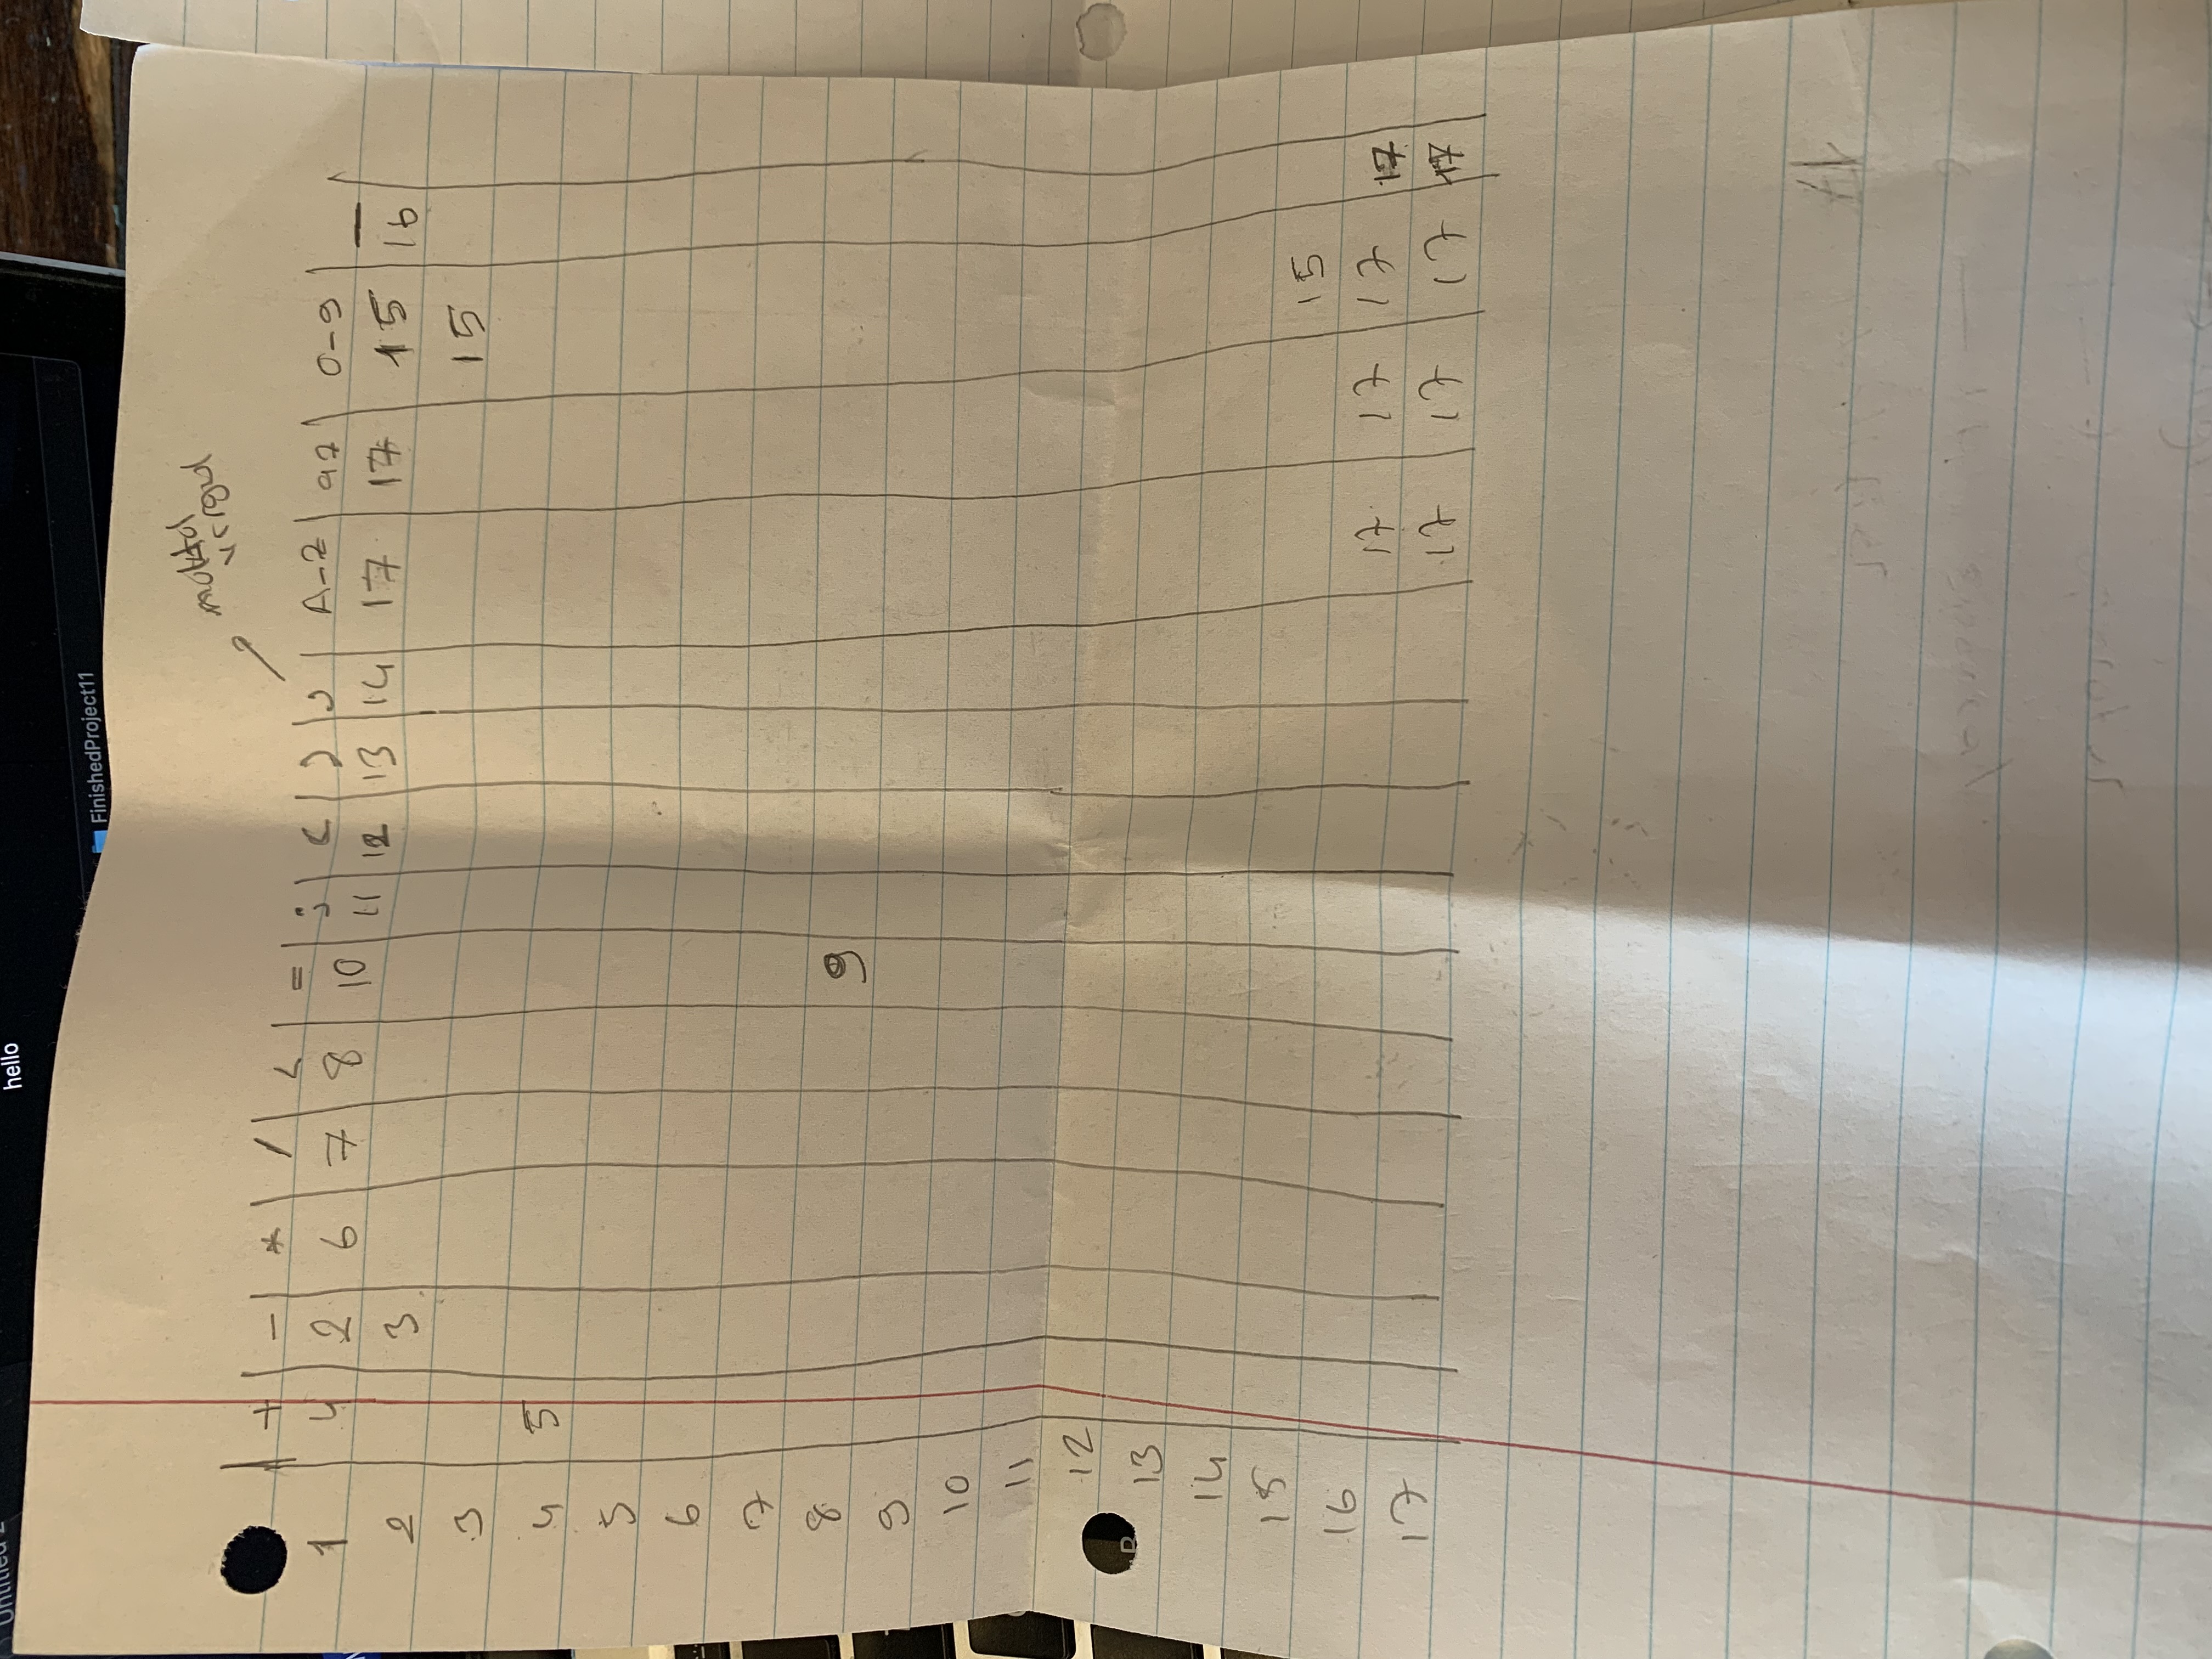 hello
FinishedProject11
+ - * / < = ; ( ) , A-Z az 0-9 _
1 4 2 6 7 8 10 11 12 13 14 17 17 15 16
2 3
3 15
4 5
5
6
7
8 9
9
10
11
12
13
14
15 15
16 17 17 17 17
17 17 17 17 17